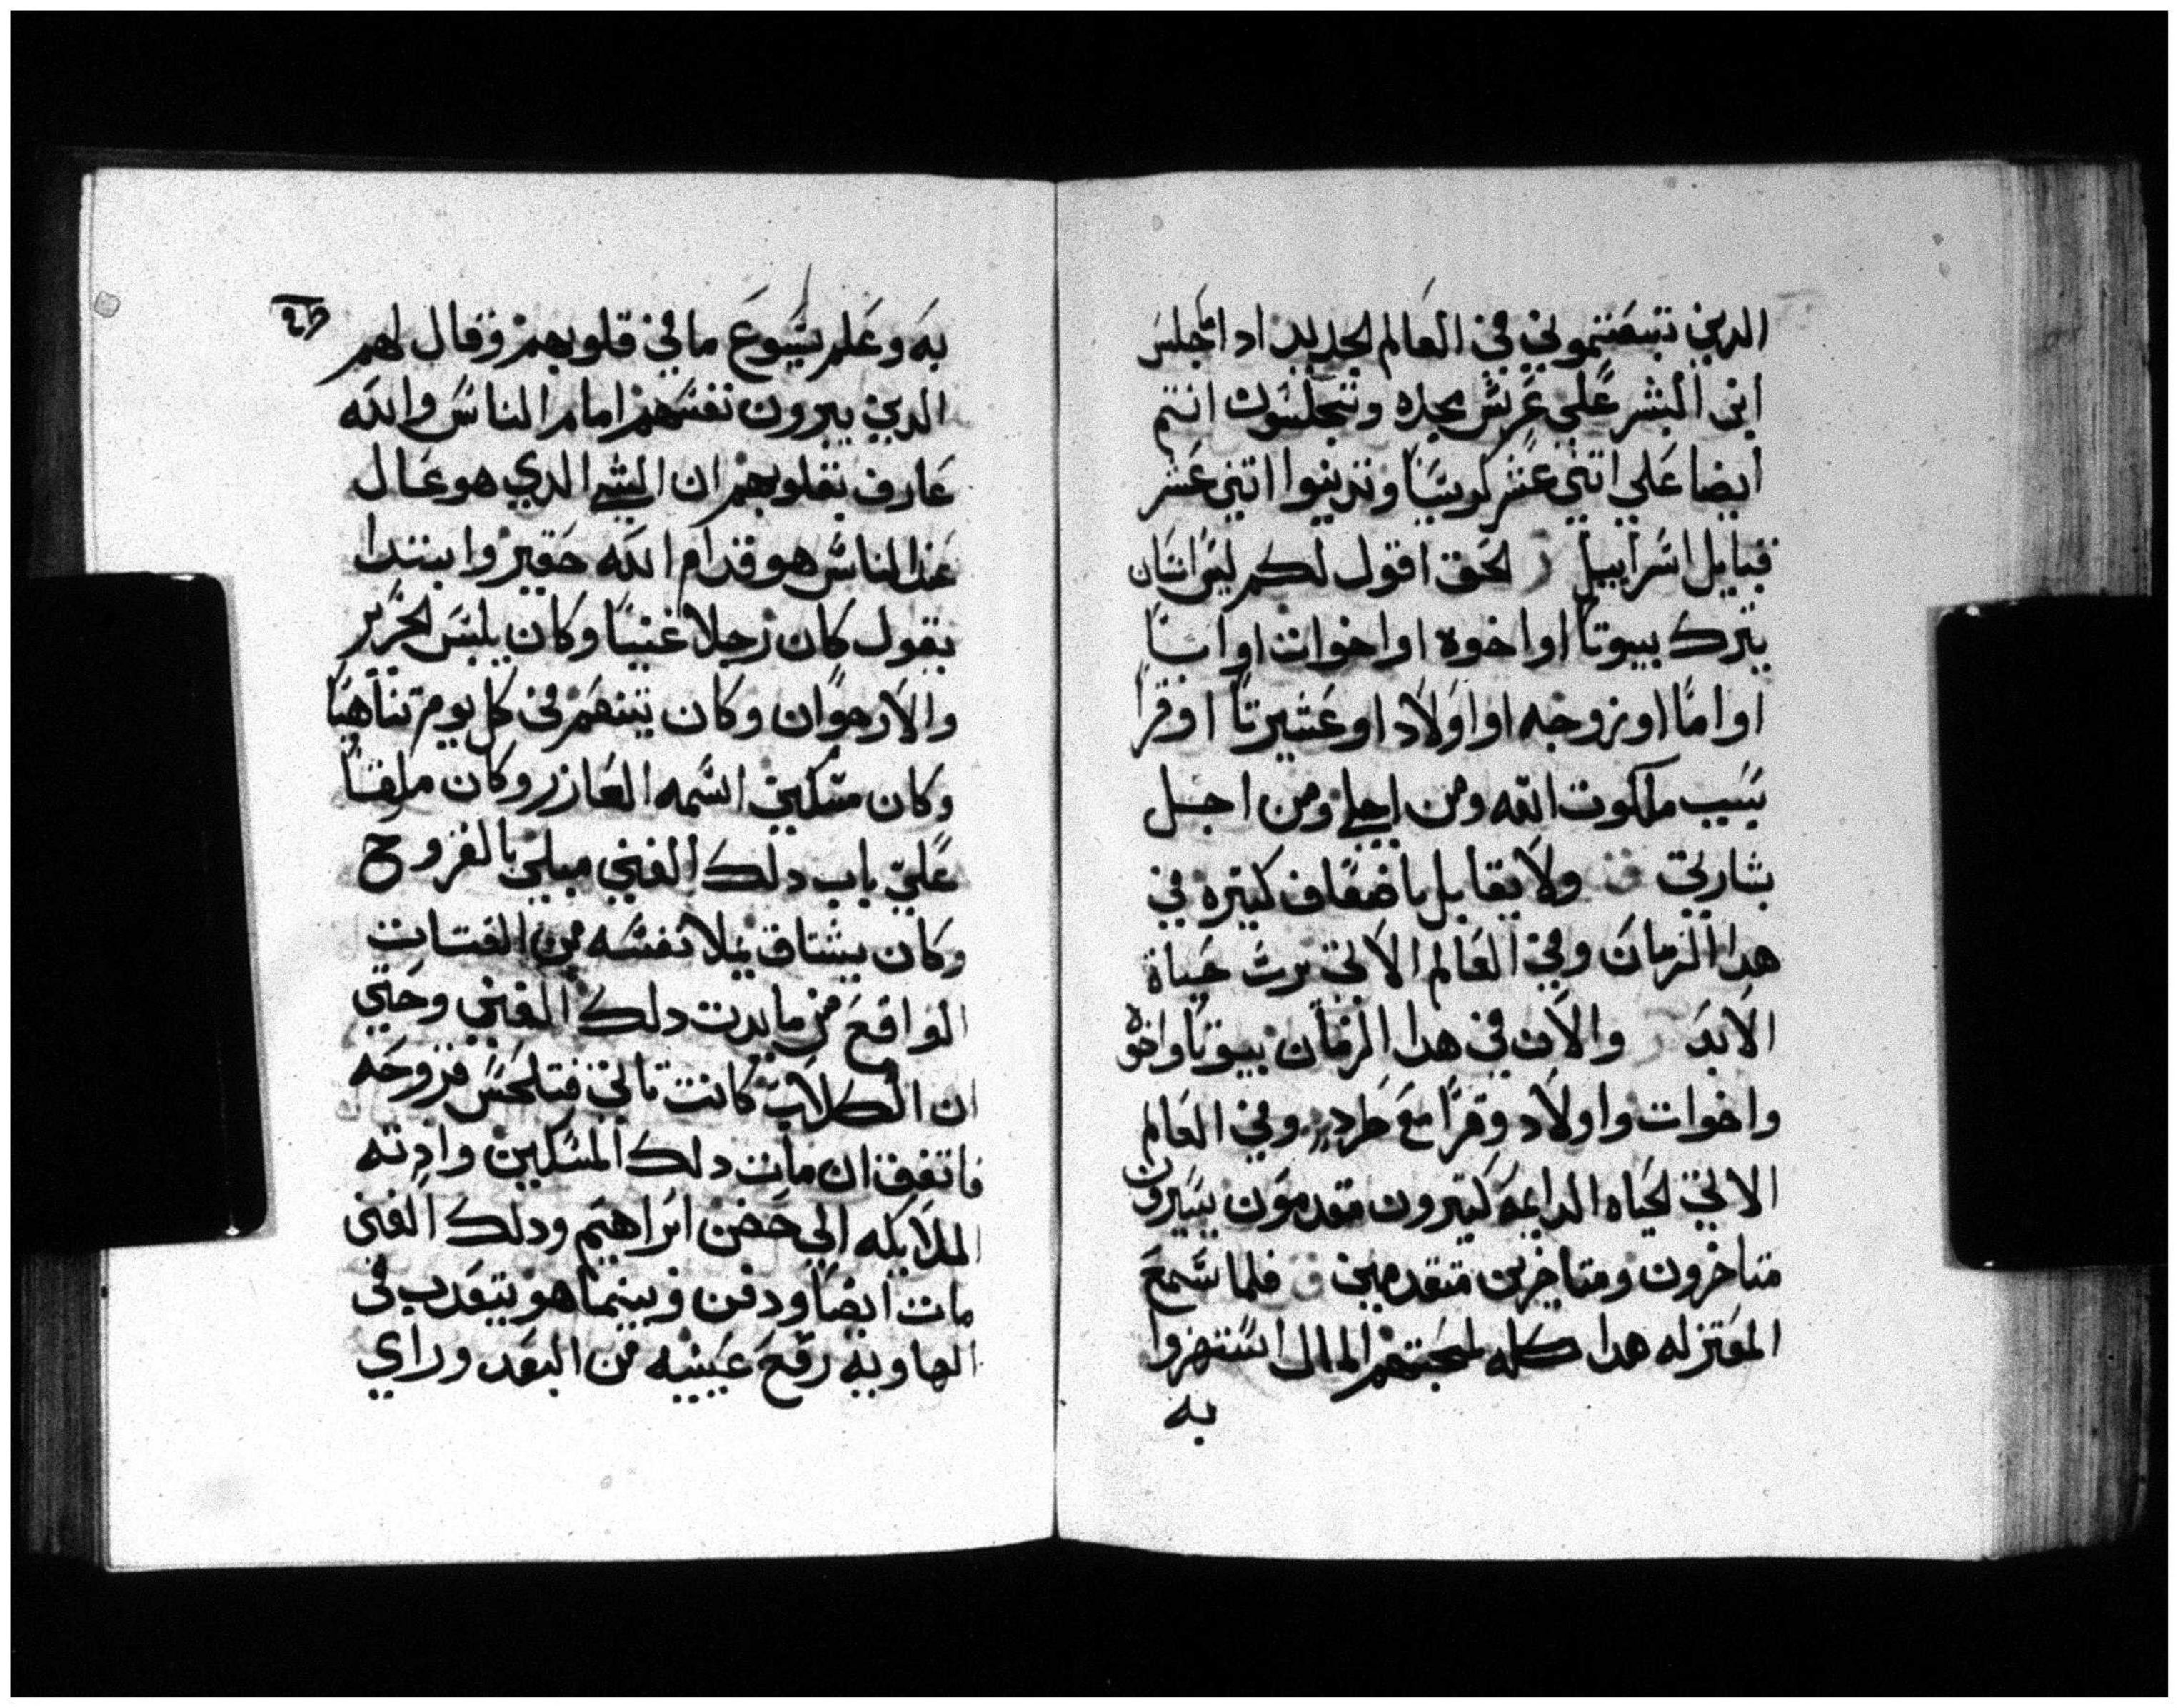 الدين تبعتموني في العالم الجديد ادا جلس
ابن البشر علي عرش مجده وتجلسون انتم
ايضا علي اتني عشر كرسيا وتدينوا اتني عشر
قبايل اسراييل ر الحق اقول لكم ليس انسان
يترك بيوتا او اخوه او اخوات او ابا
او اما او زوجه او اولاد او عشيرتا او قرا
بسبب ملكوت الله ومن اجلي ومن اجل
بشارتي ق ولا يقابل باضعاف كتيره في
هدا الزمان وفي العالم الاتي يرت حياة
الابد ر والان في هدا الزمان بيوتا واخوه
واخوات واولاد وقرا مع طرد وفي العالم
الاتي الحياه الدايمه كتيرون متقدمون يسيرون
متاخرون ومتاخرين متقدمين ق فلما سمع
المعتزله هدا كله لمحبتهم المال استهزوا
به
به وعلم يسوع ما في قلوبهم وقال لهم
الدين يبرون نفسهم امام الناس والله
عارف بقلوبهم ان الشي الدي هو عال
عند الناس هو قدام الله حقير وابتدا
يقول كان رجلا غنيا وكان يلبس الحرير
والارجوان وكان يتنعم في كل يوم تناهيا
وكان مسكين اسمه العازر وكان ملقا
علي باب دلك الغني مبلي بالقروح
وكان يشتاق يملا نفسه من الفتات
الواقع من مايدت دلك الغني وحتي
ان الكلاب كانت تاتي فتلحس قروحه
فاتفق ان مات دلك المسكين وادته
الملايكه الي حضن ابراهيم ودلك الغني
مات ايضا ودفن وبينما هو يتعدب في
الهاويه رفع عينيه من البعد وراي